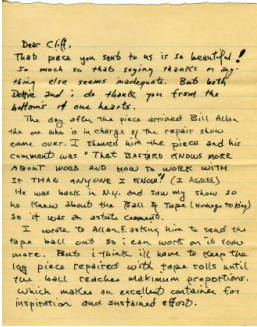 Dear Cliff,
That piece you sent to us is so beautiful!
So much so that saying thanks or any-
thing else seems inadequate. But both
and i do thank you from the
bottoms of our hearts.
The day after the piece arrived Bill Allan
the one who is in charge of the repair show
came over. I showed him the piece and his
comment was "THAT BASTARD KNOWS MORE
ABOUT WOOD AND HOW TO WORK WITH
IT THAN ANYONE I KNOW! (I AGREE)
He was back in N.Y. and saw my show so
he knew about the Ball of Tape (Homage to Big)
so it was an astute comment.
I wrote to Allan F. asking him to send the
tape ball out so i can work on it some
more. But i think ill have to keep the
log piece repaired with tape rolls until
the ball reaches maximum proportions.
Which makes an excellent container for
inspiration and sustained effort.